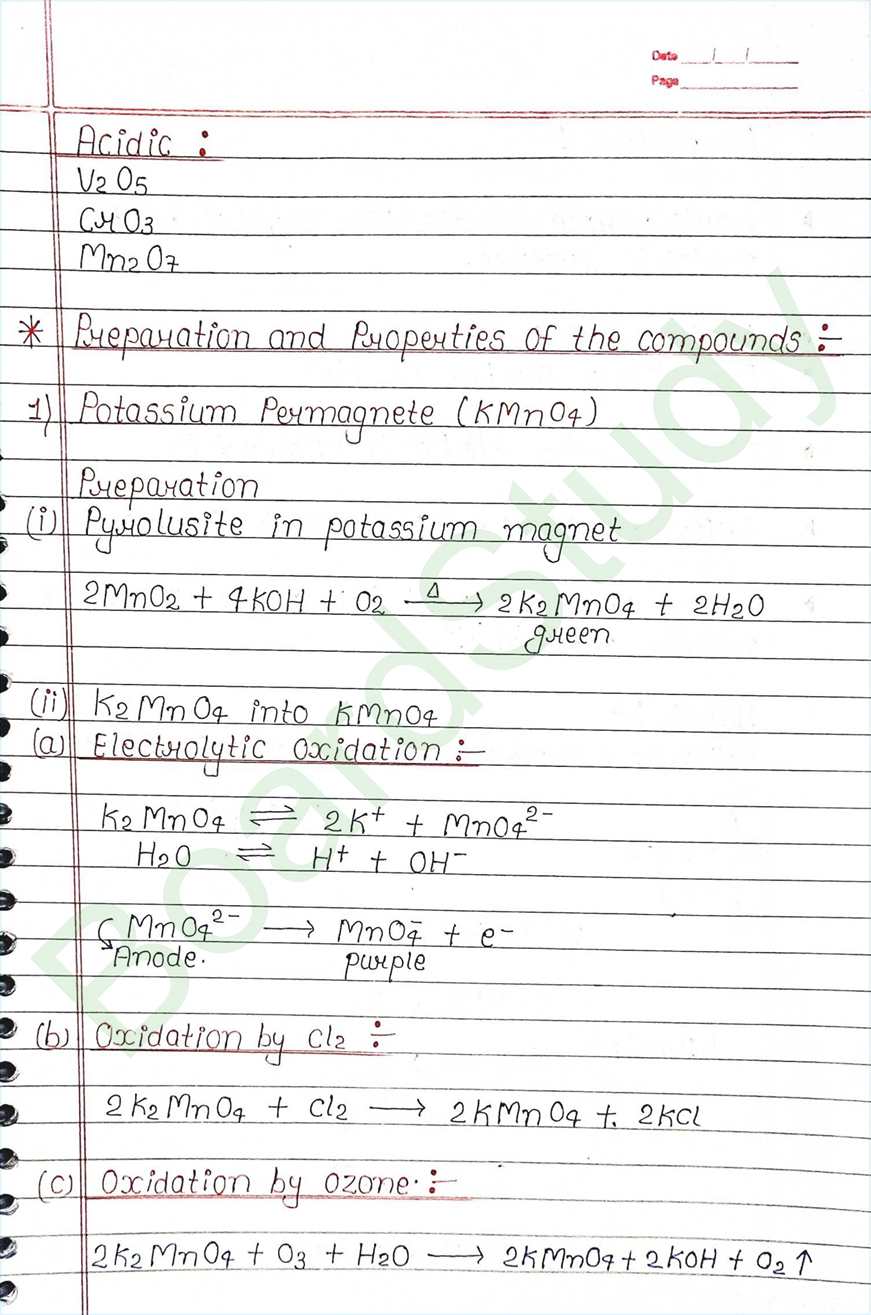 Date / /
Page
Acidic :
V2O5
CrO3
Mn2O7
* Preparation and Properties of the compounds :-
1) Potassium Permagnete (KMnO4)
Preparation
(i) Pyrolusite in potassium magnet
2MnO2 + 4KOH + O2 —Δ→ 2K2MnO4 + 2H2O
green
(ii) K2MnO4 into KMnO4
(a) Electrolytic oxidation :-
K2MnO4 ⇌ 2K⁺ + MnO4²⁻
H2O ⇌ H⁺ + OH⁻
MnO4²⁻ → MnO4⁻ + e⁻
Anode. purple
(b) Oxidation by Cl2 :-
2K2MnO4 + Cl2 → 2KMnO4 + 2KCl
(c) Oxidation by ozone. :-
2K2MnO4 + O3 + H2O → 2KMnO4 + 2KOH + O2↑
BoardStudy